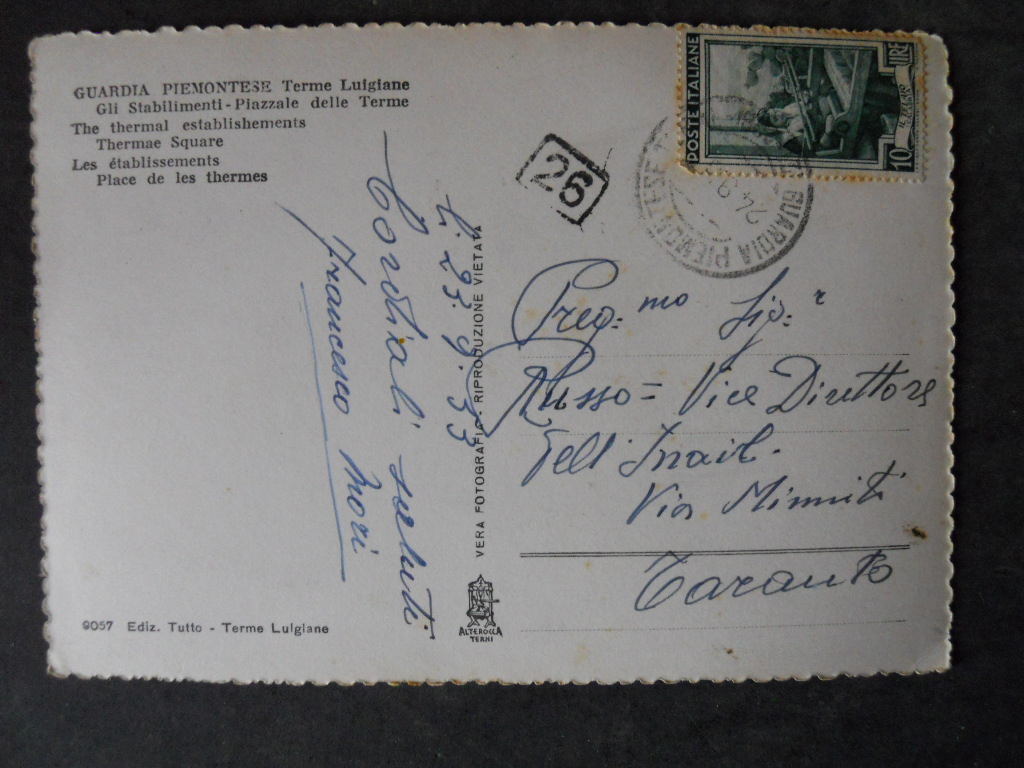 GUARDIA PIEMONTESE Terme Luigiane
Gli Stabilimenti - Piazzale delle Terme
The thermal establishements
Thermae Square
Les établissements
Place de les thermes
li 23.9.53
Cordiali saluti
Francesco Mori
9057 Ediz. Tutto - Terme Luigiane
VERA FOTOGRAFIA - RIPRODUZIONE VIETATA
ALTEROCCA
TERNI
26
POSTE ITALIANE
10 LIRE
GUARDIA PIEMONTESE T
24 9
Preg.mo Sig.r
Russo = Vice Direttore
dell' Inail.
Via Minniti
Taranto